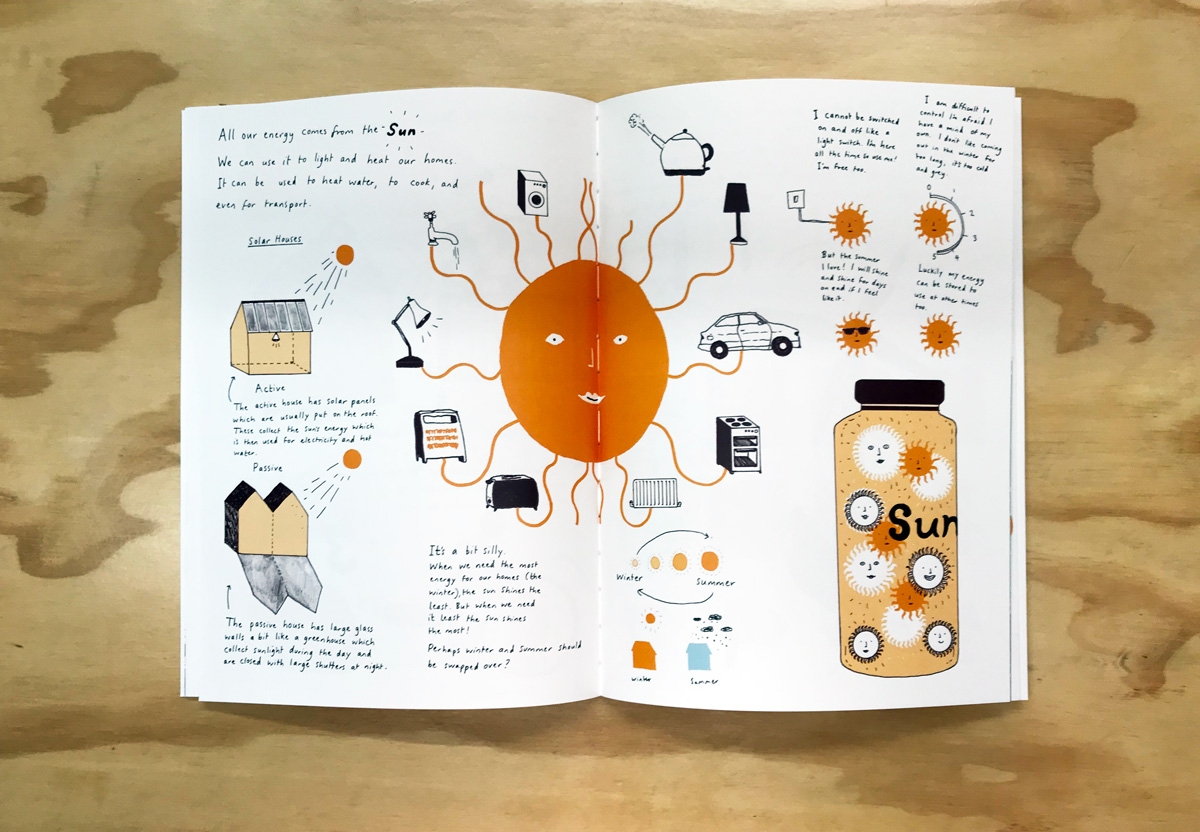 All our energy comes from the Sun
We can use it to light and heat our homes.
It can be used to heat water, to cook, and
even for transport.
Solar Houses
Active
The active house has solar panels
which are usually put on the roof.
These collect the Sun's energy which
is then used for electricity and hot
water.
Passive
The passive house has large glass
walls a bit like a greenhouse which
collect sunlight during the day and
are closed with large shutters at night.
It's a bit silly.
When we need the most
energy for our homes (the
winter), the sun shines the
least. But when we need
it least the sun shines
the most!
Perhaps winter and summer should
be swapped over?
Winter
Summer
Winter
Summer
I cannot be switched
on and off like a
light switch. I'm here
all the time so use me!
I'm free too.
I am difficult to
control I'm afraid. I
have a mind of my
own. I don't like coming
out in the winter for
too long, it's too cold
and grey.
0
1
2
3
4
5
But the summer
I love! I will shine
and shine for days
on end if I feel
like it.
Luckily my energy
can be stored to
use at other times
too.
Sun